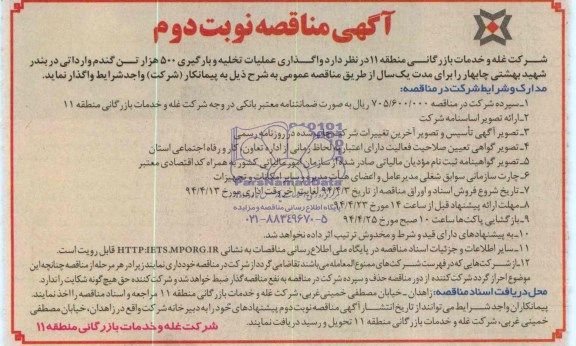 آگهی مناقصه نوبت دوم
شرکت غله و خدمات بازرگانی منطقه ۱۱ در نظر دارد واگذاری عملیات تخلیه و بارگیری ۵۰۰ هزار تن گندم وارداتی در بندر
شهید بهشتی چابهار را برای مدت یک‌سال از طریق مناقصه عمومی به شرح ذیل به پیمانکار (شرکت) واجد شرایط واگذار نماید.
مدارک و شرایط شرکت در مناقصه:
۱-سپرده شرکت در مناقصه ۷۰۵/۶۰۰/۰۰۰ ریال به صورت ضمانتنامه معتبر بانکی در وجه شرکت غله و خدمات بازرگانی منطقه ۱۱
۲-ارائه تصویر اساسنامه شرکت
۳-تصویر آگهی تأسیس و تصویر آخرین تغییرات شرکت چاپ شده در روزنامه رسمی
۴-تصویر گواهی تعیین صلاحیت فعالیت دارای اعتبار به لحاظ زمانی از اداره تعاون، کار و رفاه اجتماعی استان
۵-تصویر گواهینامه ثبت نام مؤدیان مالیاتی صادر شده از سازمان امور مالیاتی کشور به همراه کد اقتصادی معتبر
۶-چارت سازمانی سوابق شغلی مدیرعامل و اعضای هیأت مدیره و سایر امکانات و تجهیزات
۷-تاریخ شروع فروش اسناد و اوراق مناقصه از تاریخ ۹۴/۴/۳ لغایت آخر وقت اداری مورخ ۹۴/۴/۱۳
۸-مهلت ارائه پیشنهاد قبل از ساعت ۱۴ مورخ ۹۴/۴/۲۳
۹-بازگشایی پاکت‌ها ساعت ۱۰ صبح مورخ ۹۴/۴/۲۵
۱۰-به پیشنهادهای دارای قید و شرط و مخدوش ترتیب اثر داده نخواهد شد.
۱۱-سایر اطلاعات و جزئیات اسناد مناقصه در پایگاه ملی اطلاع‌رسانی مناقصات به نشانی HTTP:IETS.MPORG.IR قابل رویت است.
۱۲-از شرکت‌هایی که در فهرست شرکت‌های ممنوع المعامله می‌باشند تقاضا می گردد از شرکت در مناقصه خودداری نمایند زیرا در هر مرحله از مناقصه چنانچه این
موضوع احراز گردد شرکت کننده از دور مناقصه حذف و سپرده شرکت در مناقصه به نفع مناقصه گذار ضبط خواهد شد و شرکت کننده حق هیچ گونه شکایت را ندارد.
محل دریافت اسناد مناقصه: زاهدان ـ خیابان مصطفی خمینی غربی، شرکت غله و خدمات بازرگانی منطقه ۱۱ مراجعه و اسناد مناقصه را اخذ نمایند.
پیمانکاران واجد شرایط می توانند از تاریخ انتشار آگهی مناقصه نوبت دوم پیشنهادهای خود را به دبیرخانه شرکت واقع در زاهدان، خیابان مصطفی
خمینی غربی، شرکت غله و خدمات بازرگانی منطقه ۱۱ تحویل و رسید دریافت نمایند.
شرکت غله و خدمات بازرگانی منطقه ۱۱
ParsNamadData
پایگاه اطلاع رسانی مناقصه و مزایده
۰۲۱-۸۸۳۴۹۶۷۰-۵